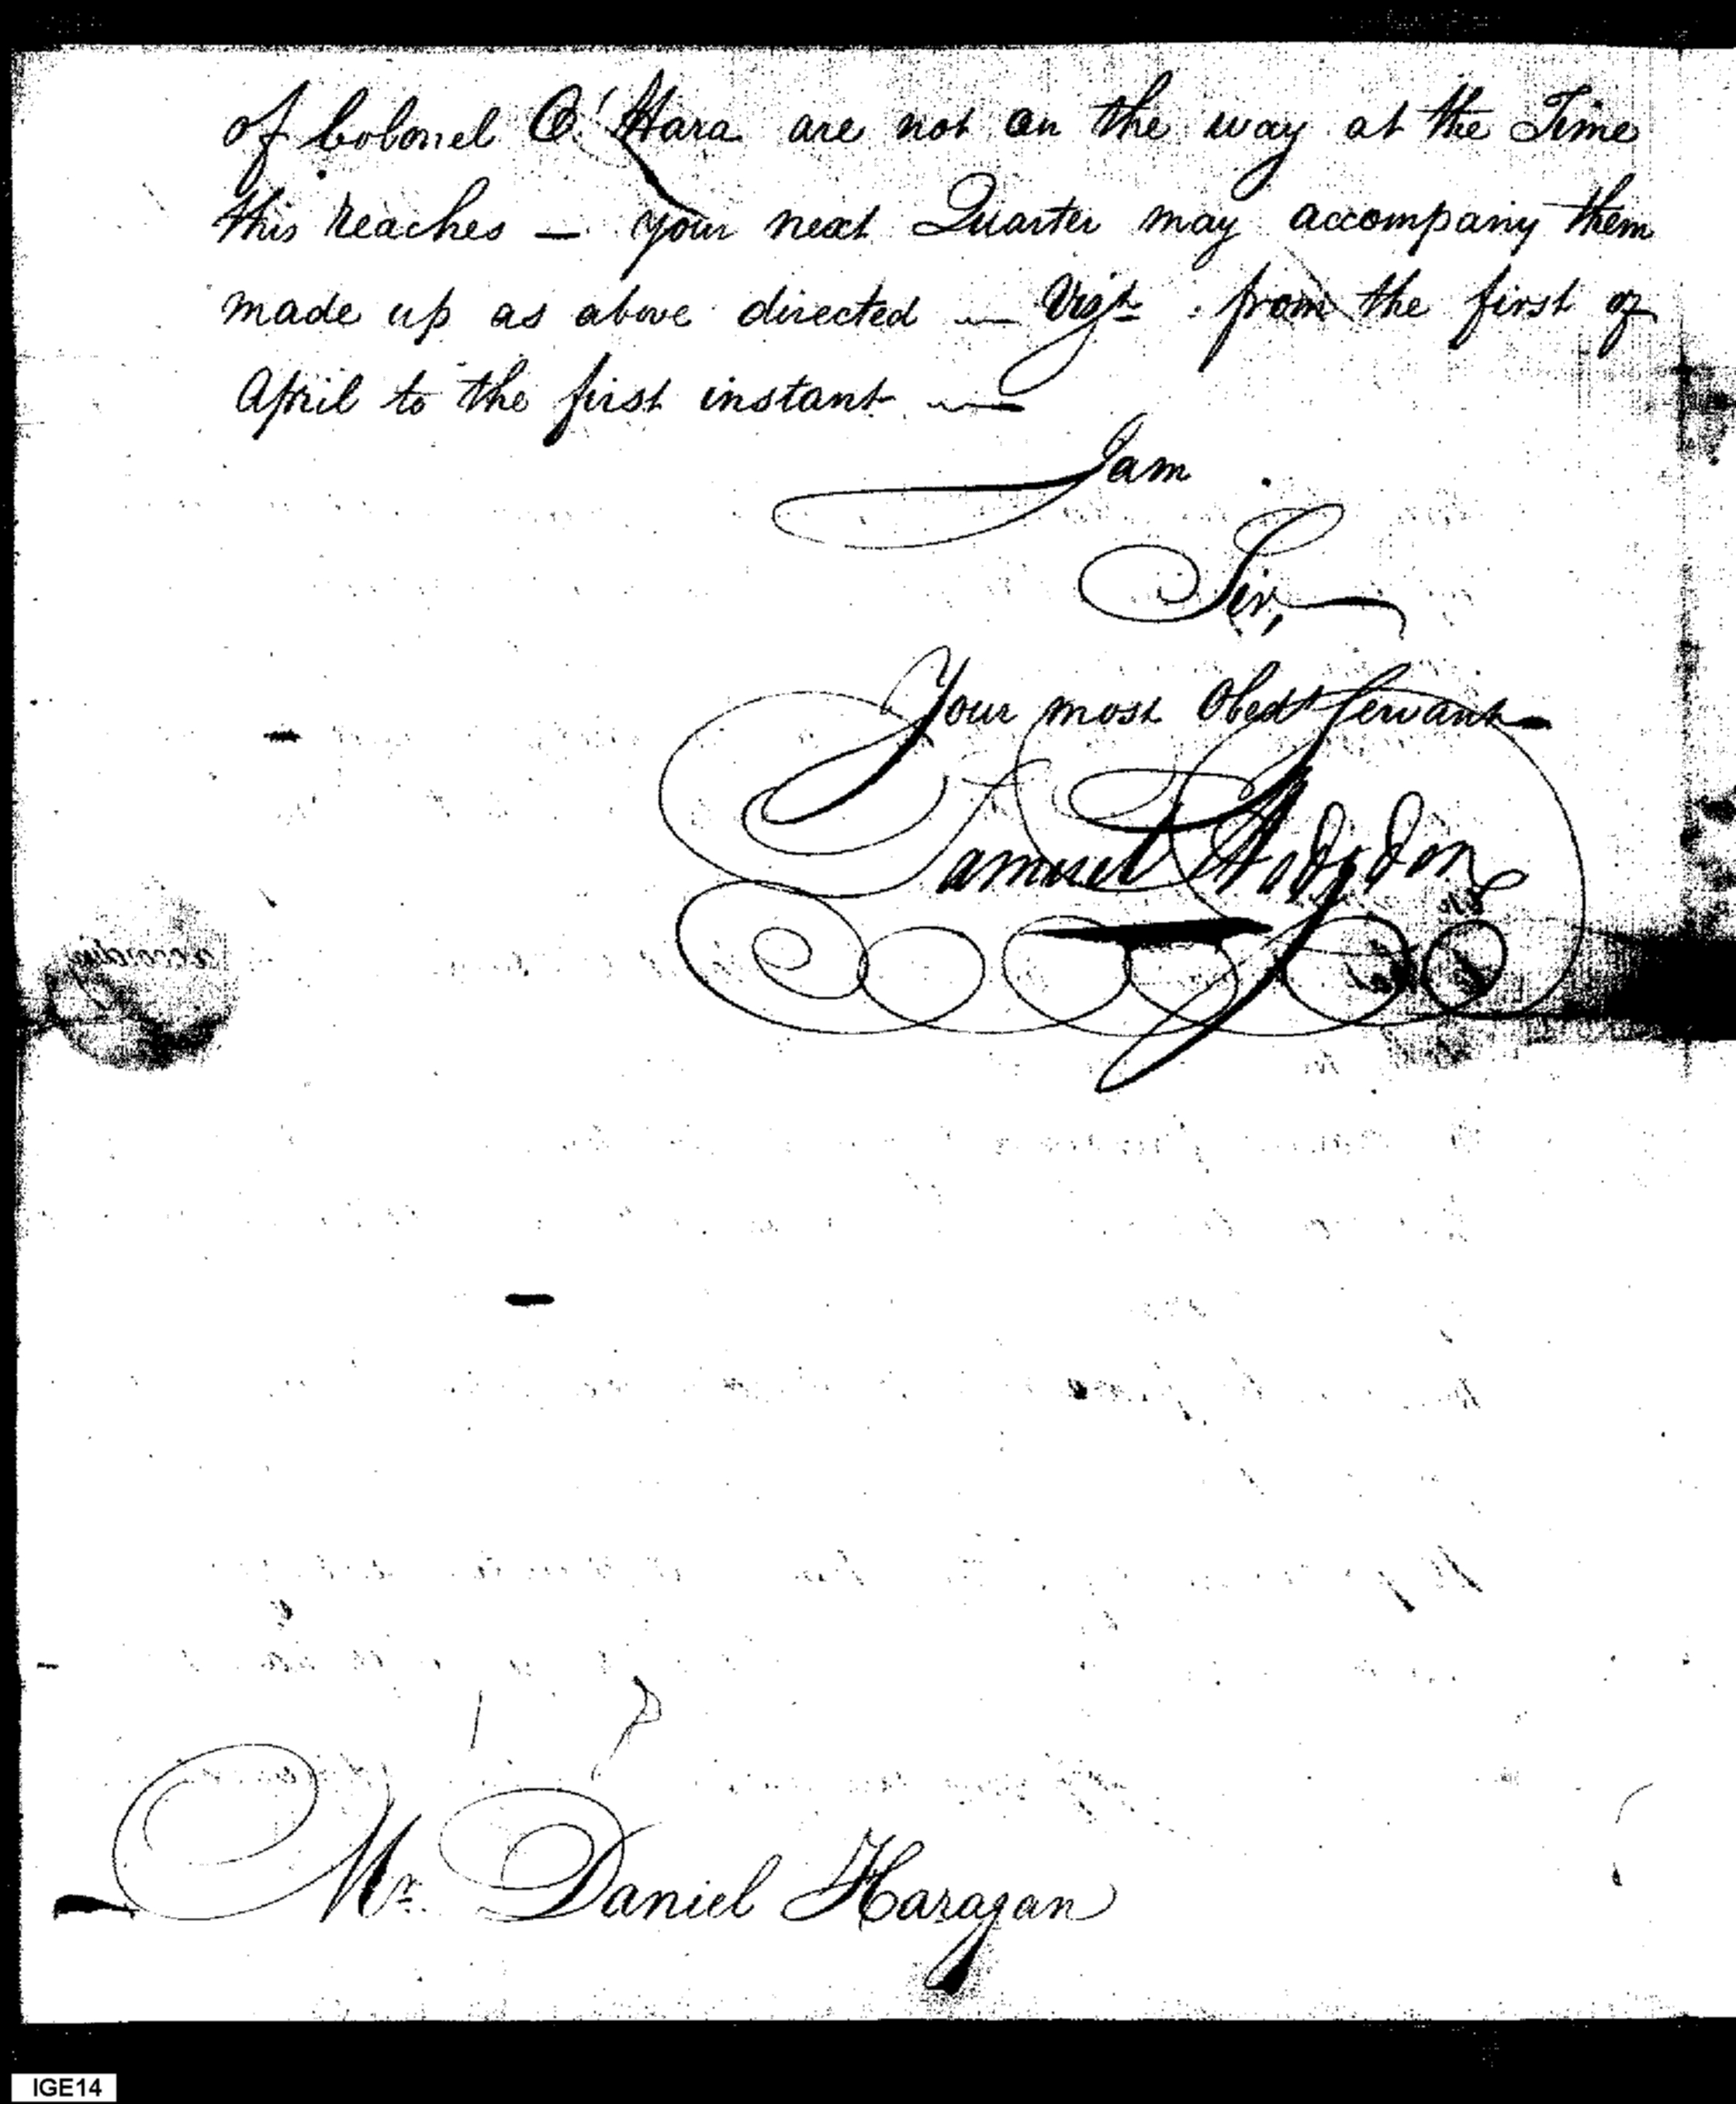 of Colonel O'Hara are not on the way at the Time
this reaches — your next Quarter may accompany them
made up as above directed — Vizt. from the first of
April to the first instant —
I am
Sir,
Your most Obedt Servant
Samuel Hodgdon
Mr. Daniel Haragan
IGE14